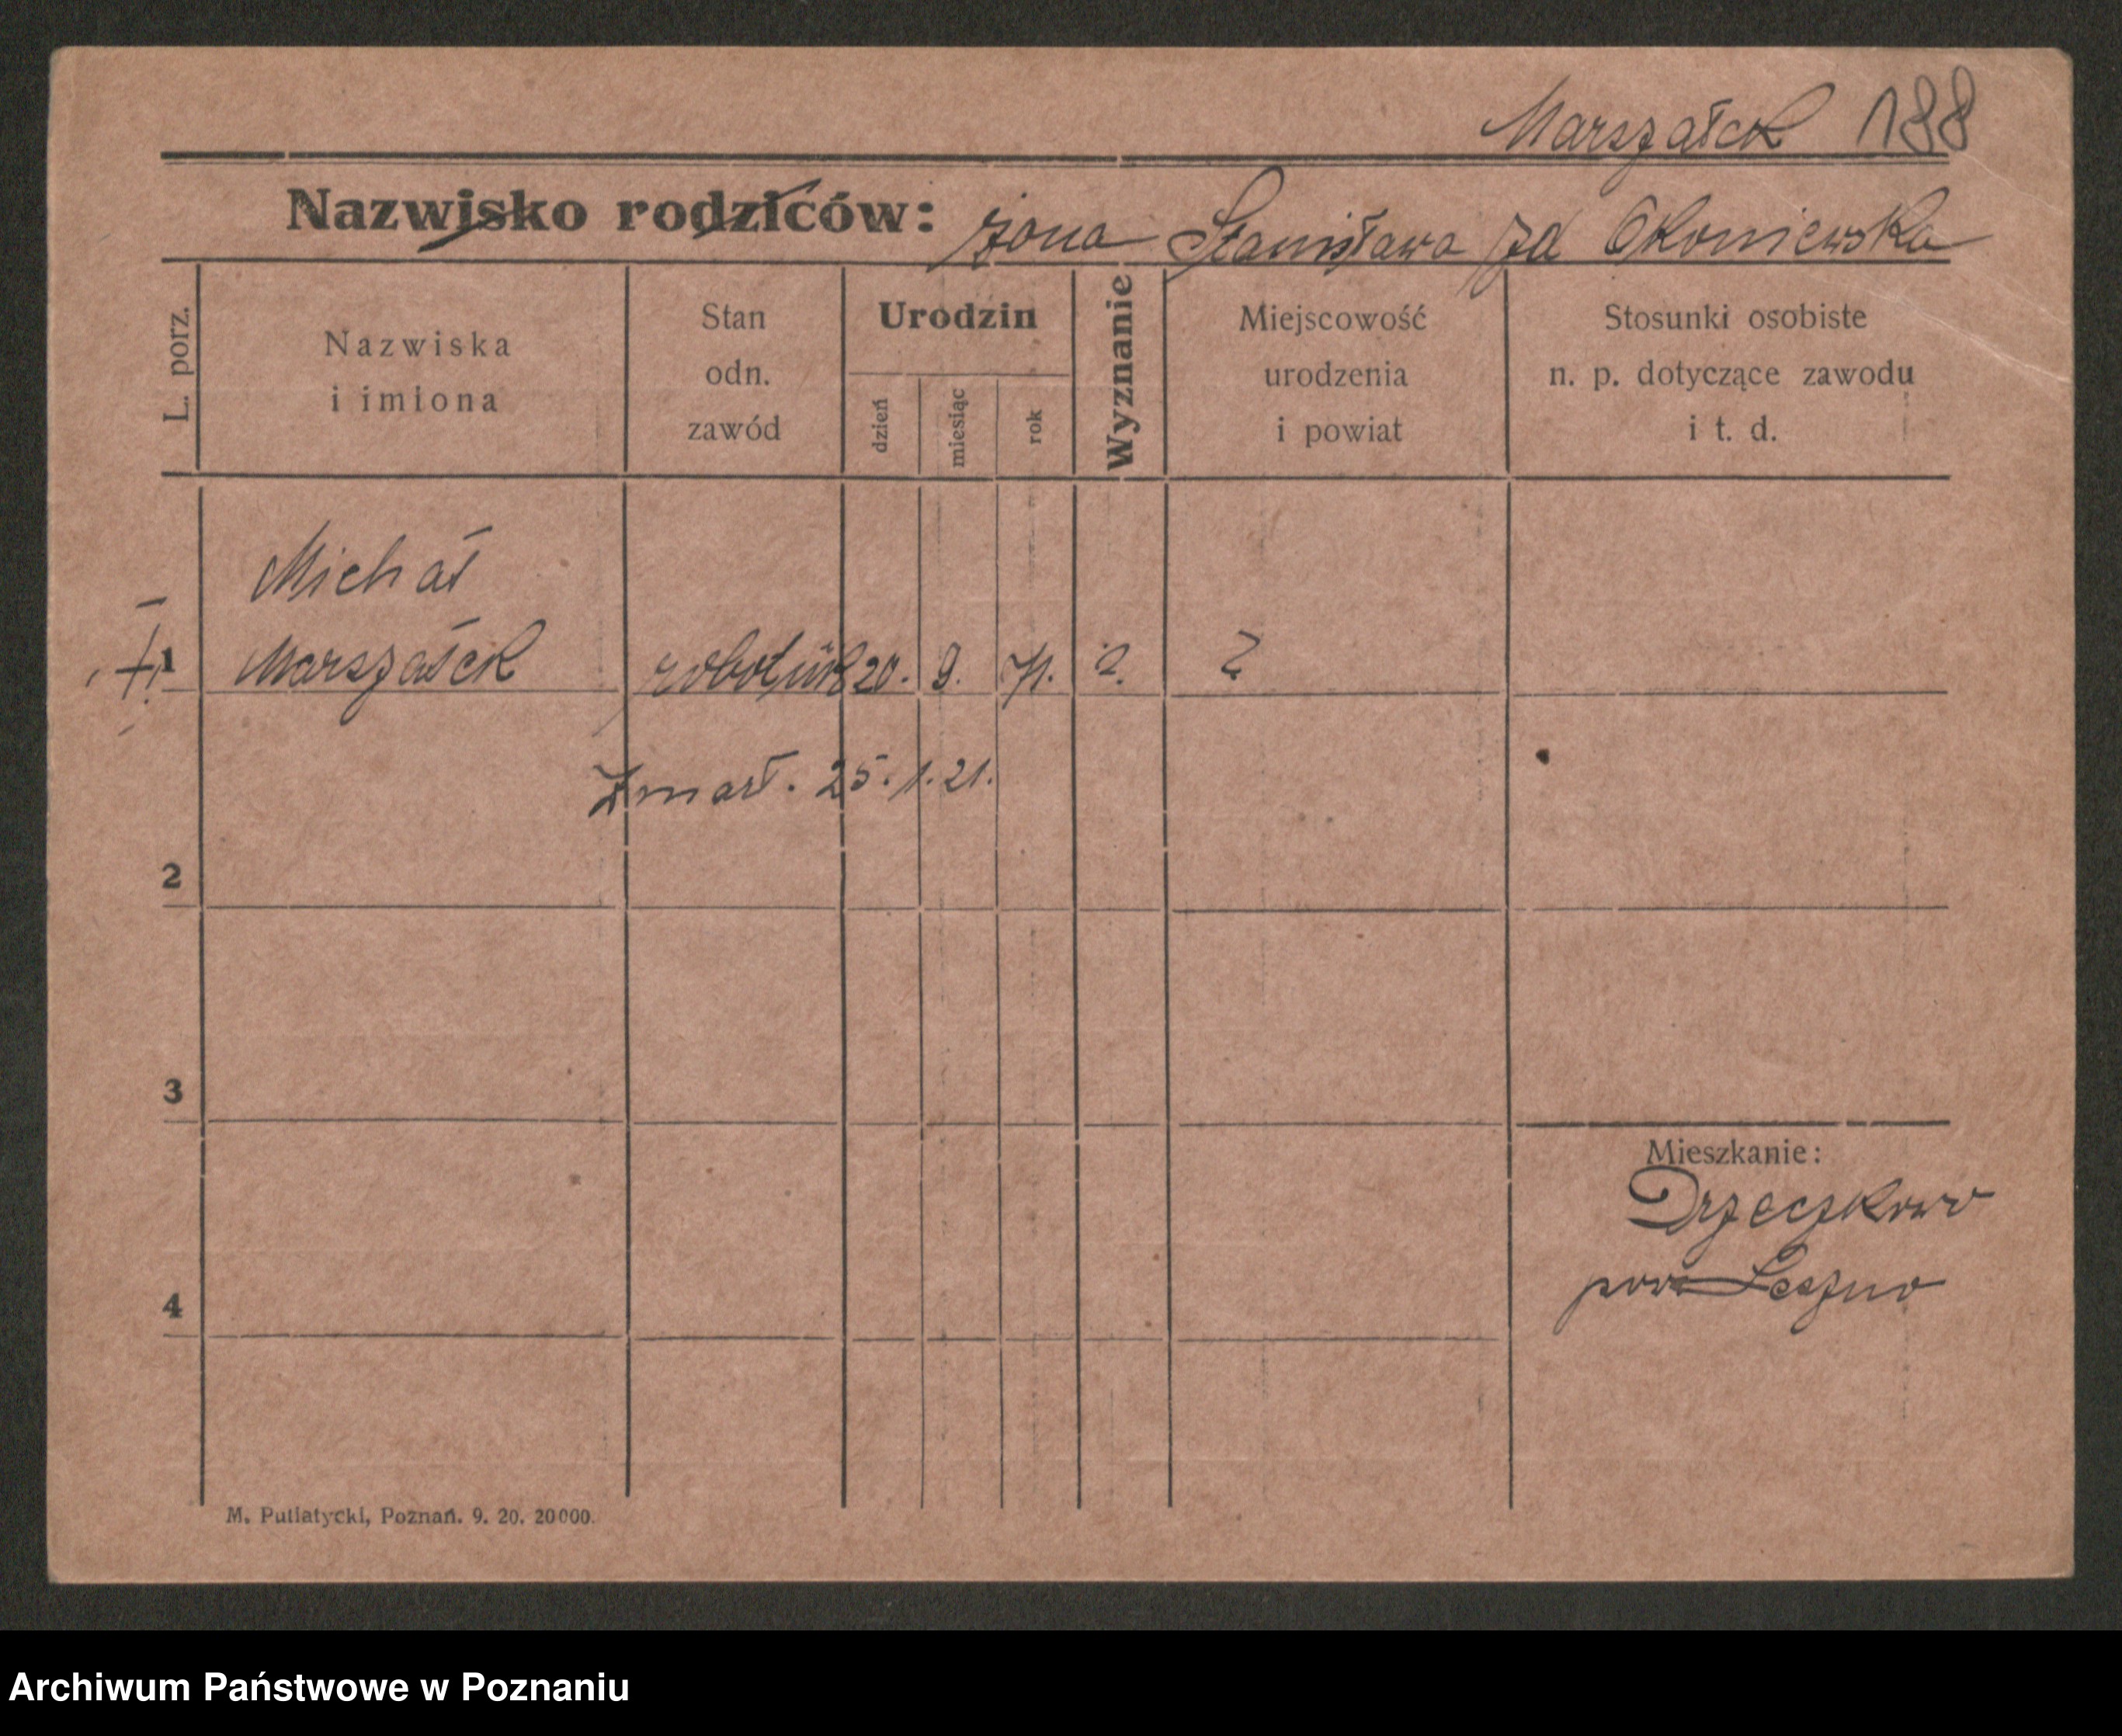 Marszałek 188
Nazwisko rodziców: żona Stanisława zd Okoniewska
L. porz.
Nazwiska
i imiona
Stan
odn.
zawód
Urodzin
dzień
miesiąc
rok
Wyznanie
Miejscowość
urodzenia
i powiat
Stosunki osobiste
n. p. dotyczące zawodu
i t. d.
Michał
1 Marszałek robotnik 20. 9. 71. ? ?
Zmarł. 25.1.21.
2
3
Mieszkanie:
Drzeczkowo
pow Leszno
4
M. Putiatycki, Poznań. 9. 20. 20000.
Archiwum Państwowe w Poznaniu